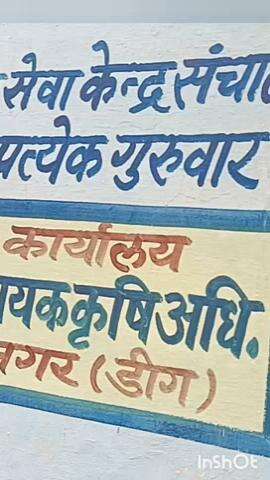 सेवा केन्द्र संचा
प्रत्येक गुरुवार
कार्यालय
यक कृषि अधि.
नगर (डीग)
InShOt